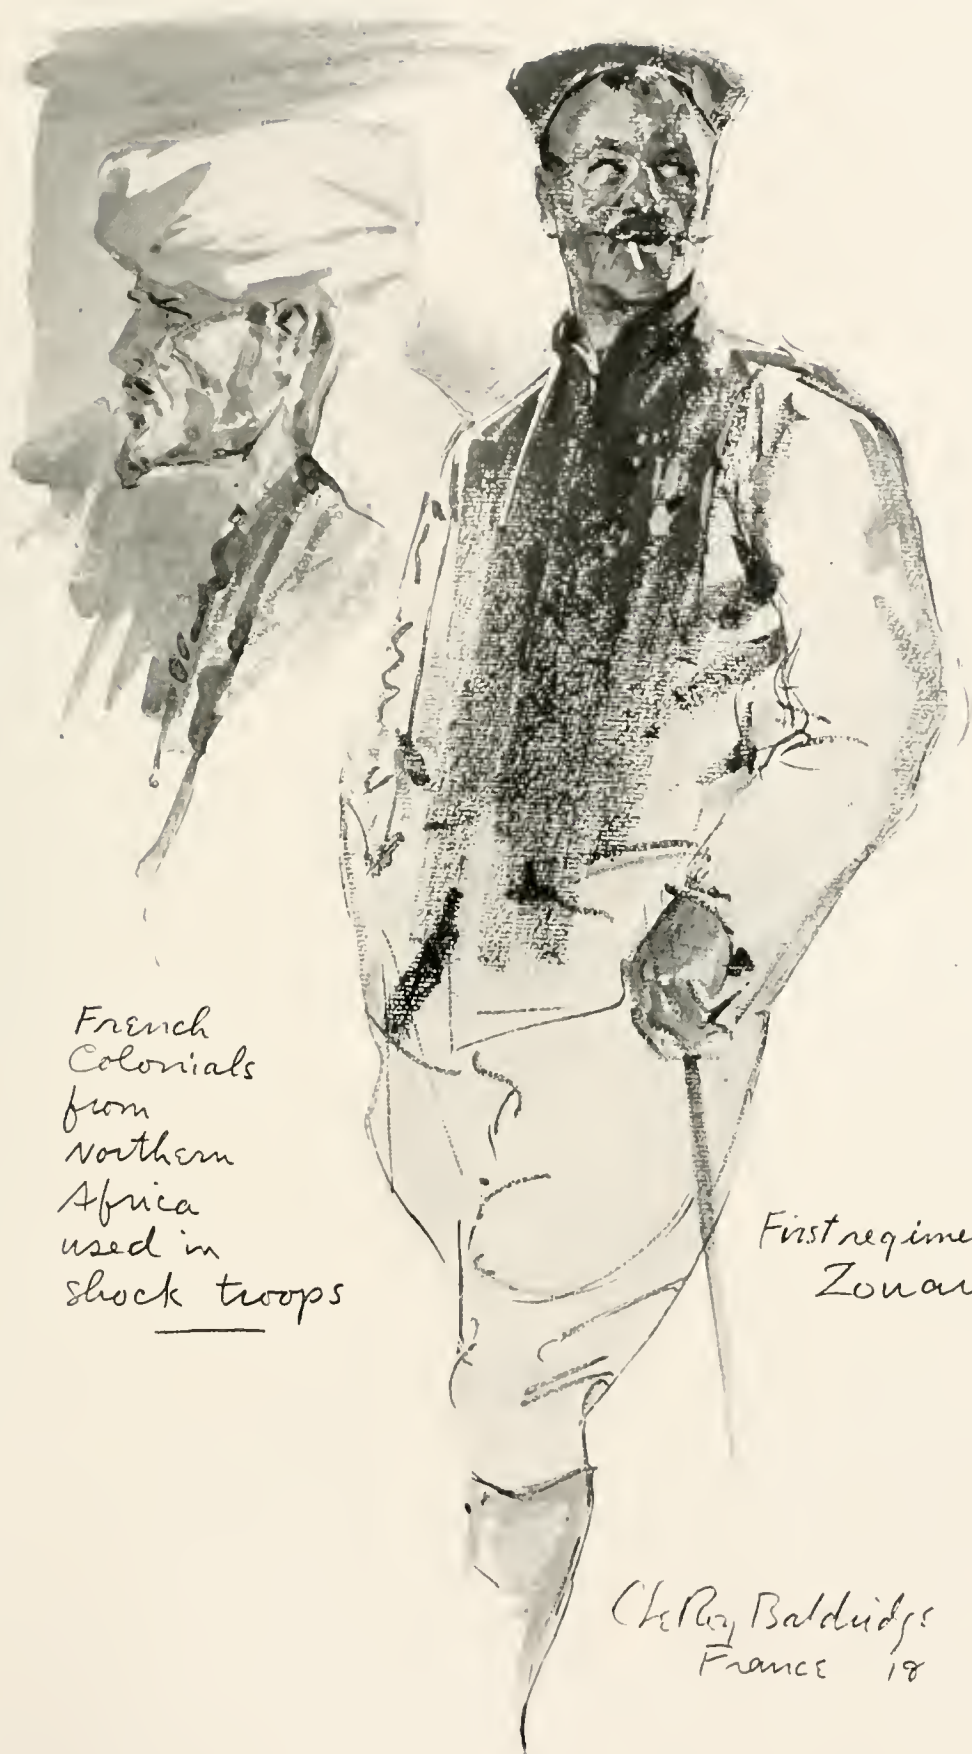 French
Colonials
from
Northern
Africa
used in
shock troops
First regime
Zouav
C LeRoy Baldridge
France 18